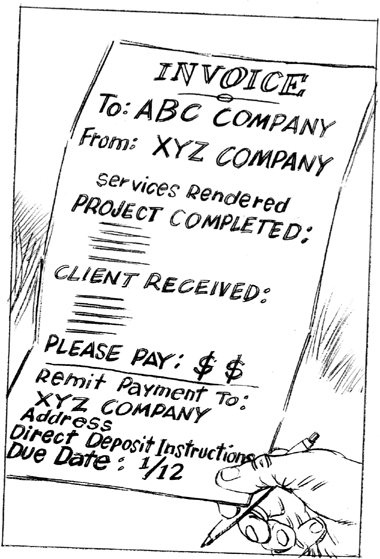 INVOICE
To: ABC COMPANY
From: XYZ COMPANY
services Rendered
PROJECT COMPLETED:
CLIENT RECEIVED:
PLEASE PAY: $ $
Remit Payment To:
XYZ COMPANY
Address
Direct Deposit Instructions
Due Date: 1/12